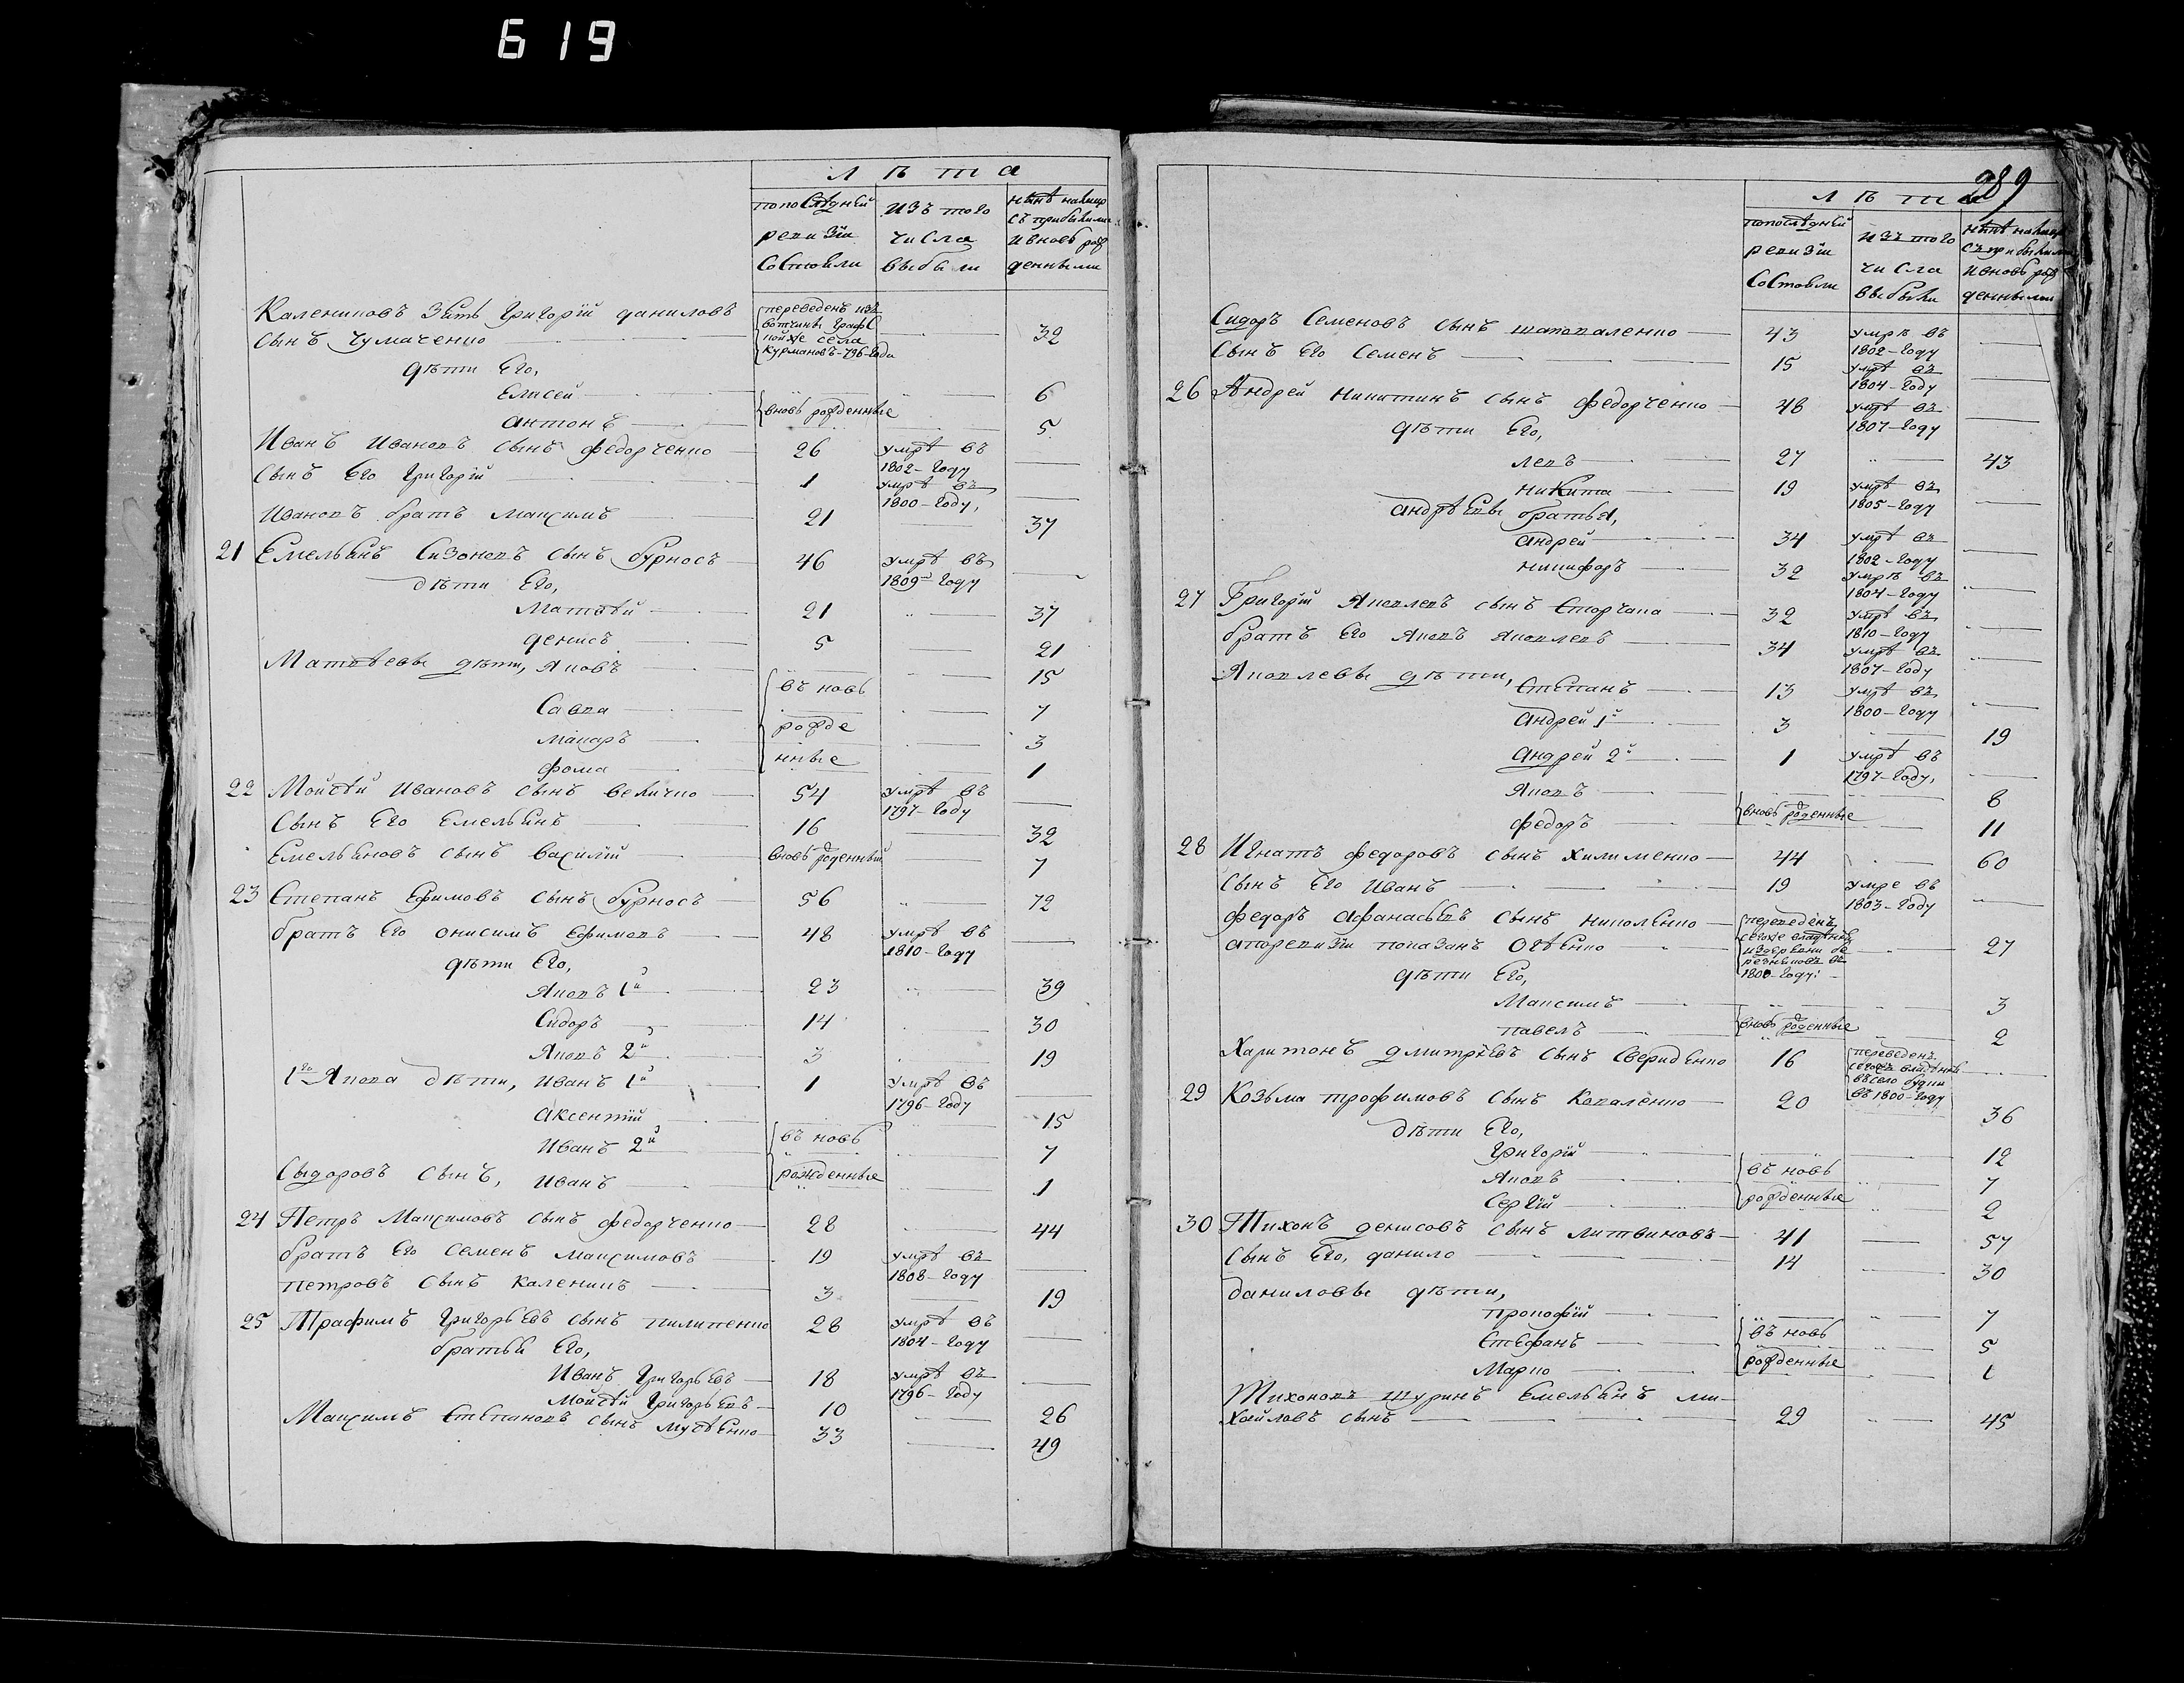 619
Лѣта
попослѣдней ревизіи состояли
изъ того числа выбыли
нынѣ налицо съ прибылыми и вновь рожденными
Калениковъ зять Григорій Даниловъ
сынъ Чумаченко — переведенъ изъ вотчины графс той же села Курмановъ 796 года — 32
дѣти его,
Елисей — 6
Антонъ — вновь рожденные — 5
Иванъ Ивановъ сынъ Федорченко — 26 умрѣ въ 1802 году —
сынъ его Григорій — 1 умрѣ въ 1800 году, —
Ивановъ братъ Максимъ — 21 — 37
21 Емельянъ Сизоновъ сынъ Бурносъ — 46 умрѣ въ 1809 году —
дѣти его,
Матвѣй — 21 — 37
Денисъ — 5 — 21
Матвѣевы дѣти, Яковъ — 15
Савва — въ новь — 7
Макаръ — рожде — 3
Фома — нные — 1
22 Мойсѣй Ивановъ сынъ Величко — 54 умрѣ въ 1797 году —
сынъ его Емельянъ — 16 — 32
Емельяновъ сынъ Василій — вновь рожденный — 7
23 Степанъ Ефимовъ сынъ Бурносъ — 56 — 72
братъ его Онисимъ Ефимовъ — 48 умрѣ въ 1810 году —
дѣти его,
Яковъ 1й — 23 — 39
Сидоръ — 14 — 30
Яковъ 2й — 3 — 19
1го Якова дѣти, Иванъ 1й — 1 умрѣ въ 1796 году —
Аксентій — 15
Иванъ 2й — въ новь — 7
Сыдоровъ сынъ, Иванъ — рожденные — 1
24 Петръ Максимовъ сынъ Федорченко — 28 — 44
братъ его Семенъ Максимовъ — 19 умрѣ въ 1808 году —
Петровъ сынъ Каленикъ — 3 — 19
25 Трафимъ Григорьевъ сынъ Пилипенко 28 умрѣ въ 1804 году —
братья его,
Иванъ Григорьевъ — 18 умрѣ въ 1796 году —
Мойсѣй Григорьевъ — 10 — 26
Максимъ Степановъ сынъ Мусѣенко — 33 — 49
289
Лѣта
попослѣдней ревизіи состояли
изъ того числа выбыли
нынѣ налицо съ прибылыми и вновь рожденными
Сидоръ Семеновъ сынъ Шаповаленко — 43 умрѣ въ 1802 году —
сынъ его Семенъ — 15 умрѣ въ 1804 году —
26 Андрей Никитинъ сынъ Федорченко — 48 умрѣ въ 1807 году —
дѣти его,
Левъ — 27 — 43
Никита — 19 умрѣ въ 1805 году —
Андрѣевы братья,
Андрей — 34 умрѣ въ 1802 году —
Никифоръ — 32 умрѣ въ 1804 году —
27 Григорій Яковлевъ сынъ Сторчака — 32 умрѣ въ 1810 году —
братъ его Яковъ Яковлевъ — 34 умрѣ въ 1807 году —
Яковлевы дѣти, Степанъ — 13 умрѣ въ 1800 году —
Андрей 1й — 3 — 19
Андрей 2й — 1 умрѣ въ 1797 году, —
Яковъ — 8
Федоръ — вновь рожденные — 11
28 Игнатъ Федоровъ сынъ Хилименко — 44 — 60
сынъ его Иванъ — 19 умре въ 1803 году —
Федоръ Афанасьевъ сынъ Николенко — переведенъ
аторевизіи показанъ Овѣенко — 1800 году: — 27
дѣти его,
Максимъ — 3
Павелъ — вновь рожденные — 2
Харитонъ Дмитріевъ сынъ Свериденко 16 переведенъ въ село Будки въ 1800 году —
29 Козьма Трофимовъ сынъ Коваленко — 20 — 36
дѣти его,
Григорій — 12
Яковъ — въ новь — 7
Сергій — рожденные — 2
30 Тихонъ Денисовъ сынъ Литвиновъ — 41 — 57
сынъ его, Данило — 14 — 30
Даниловы дѣти,
Прокофій — 7
Стефанъ — въ новь — 5
Марко — рожденные — 1
Тихоновъ шуринъ Емельянъ Ми-
хайловъ сынъ — 29 — 45